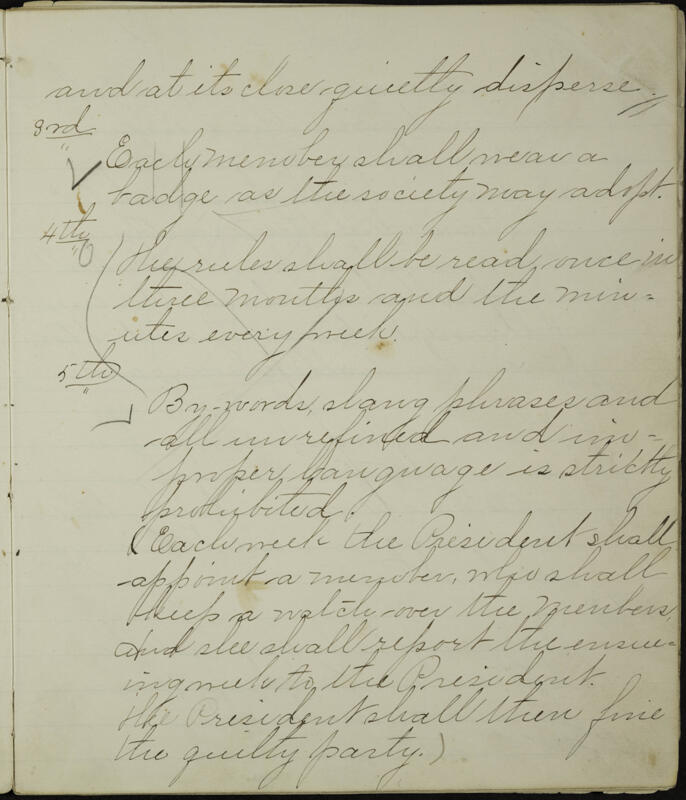 and at its close quietly disperse.
3rd
Each member shall wear a
badge as the society may adopt.
4th
The rules shall be read once in
three months and the min=
utes every week.
5th
By-words, slang phrases and
all unrefined and im=
proper language is strictly
prohibited.
(Each week the President shall
appoint a member, who shall
keep a watch over the members,
and she shall report the ensue-
ing week to the President.
The President shall then fine
the guilty party.)